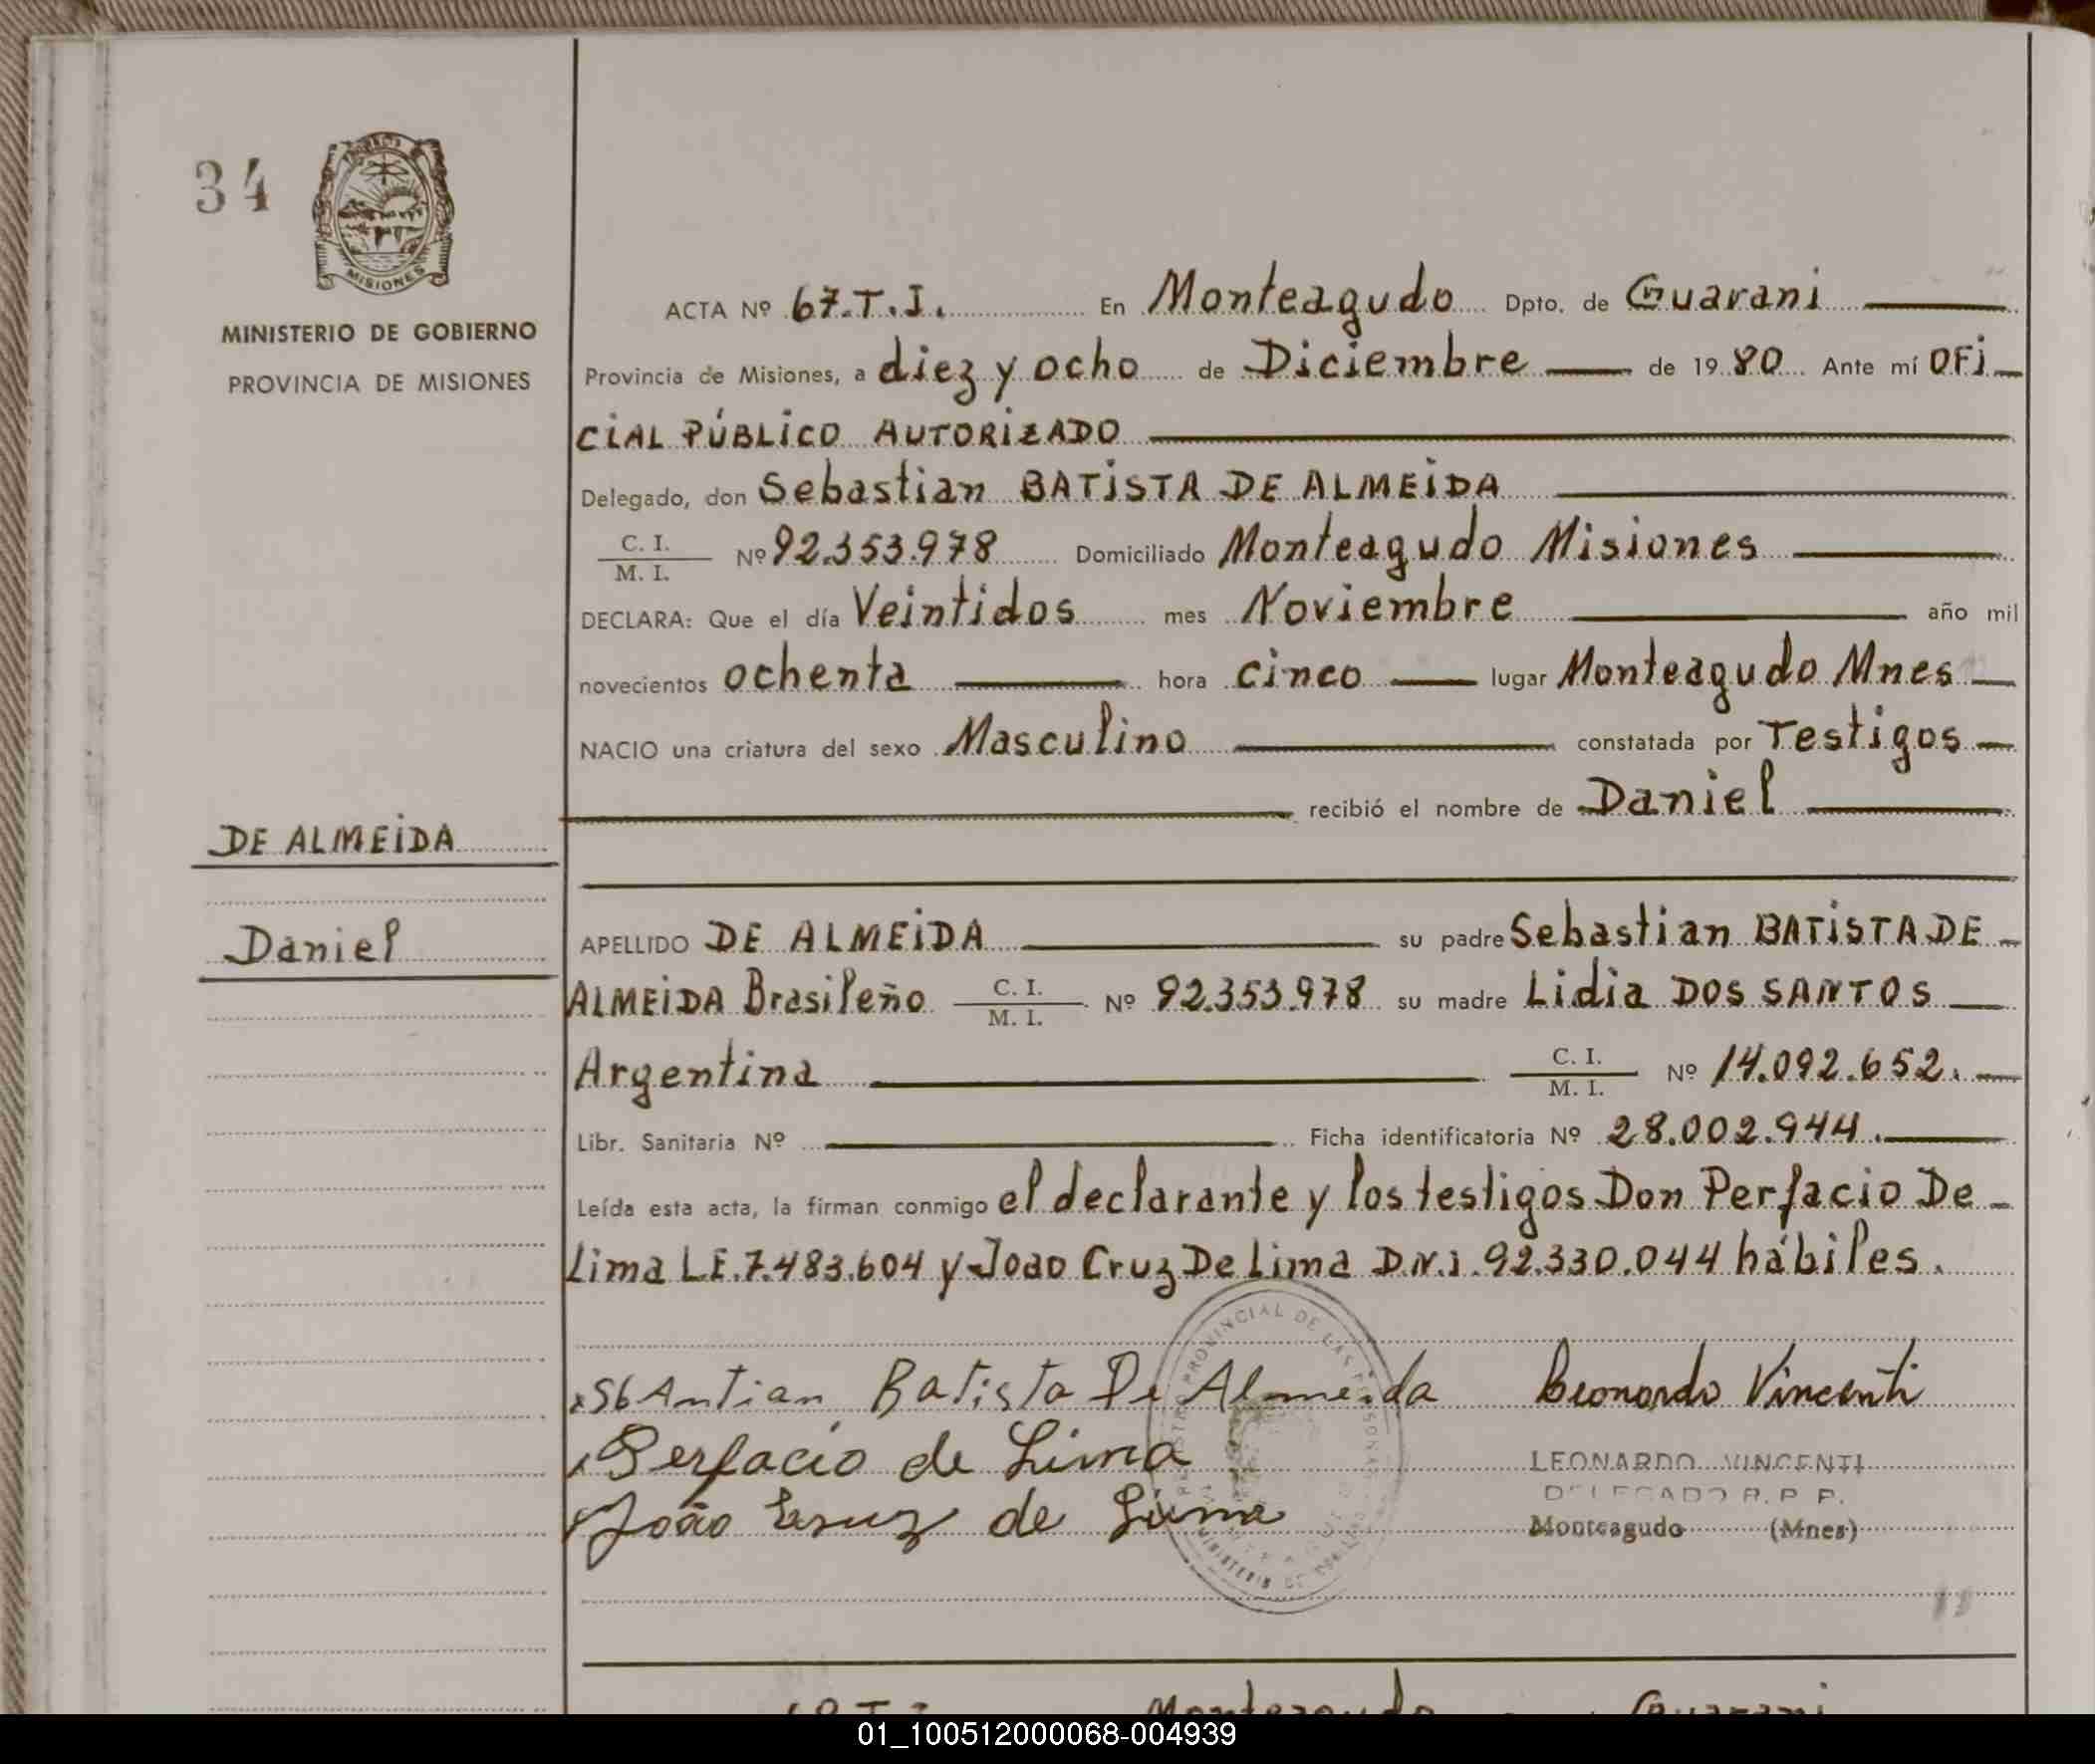 34
MISIONES
MINISTERIO DE GOBIERNO
PROVINCIA DE MISIONES
ACTA Nº 67.T.I. En Monteagudo Dpto. de Guarani
Provincia de Misiones, a diez y ocho de Diciembre de 1980 Ante mí OFi
CiAL PÚBLiCO AUTORiZADO
Delegado, don Sebastian BATiSTA DE ALMEiDA
C. I.
M. I. Nº 92.353.978 Domiciliado Monteagudo Misiones
DECLARA: Que el día Veintidos mes Noviembre año mil
novecientos ochenta hora cinco lugar Monteagudo Mnes
NACIO una criatura del sexo Masculino constatada por Testigos
recibió el nombre de Daniel
DE ALMEiDA
Daniel
APELLIDO DE ALMEiDA su padre Sebastian BATiSTA DE
ALMEiDA Brasileño C. I.
M. I. Nº 92.353.978 su madre Lidia DOS SANTOS
Argentina C. I.
M. I. Nº 14.092.652.
Libr. Sanitaria Nº Ficha identificatoria Nº 28.002.944.
Leída esta acta, la firman conmigo el declarante y los testigos Don Perfacio De
Lima L.E. 7.483.604 y Joao Cruz De Lima D.N.i. 92.330.044 hábiles.
SbAntian Batista De Almeida Leonardo Vincenti
Perfacio de Lima
João Cruz de Lima
LEONARDO VINCENTI
DELEGADO R.P.P.
Monteagudo (Mnes)
REGISTRO PROVINCIAL DE LAS PERSONAS
MINISTERIO DE GOBIERNO
Monteagudo Guarani
01_100512000068-004939